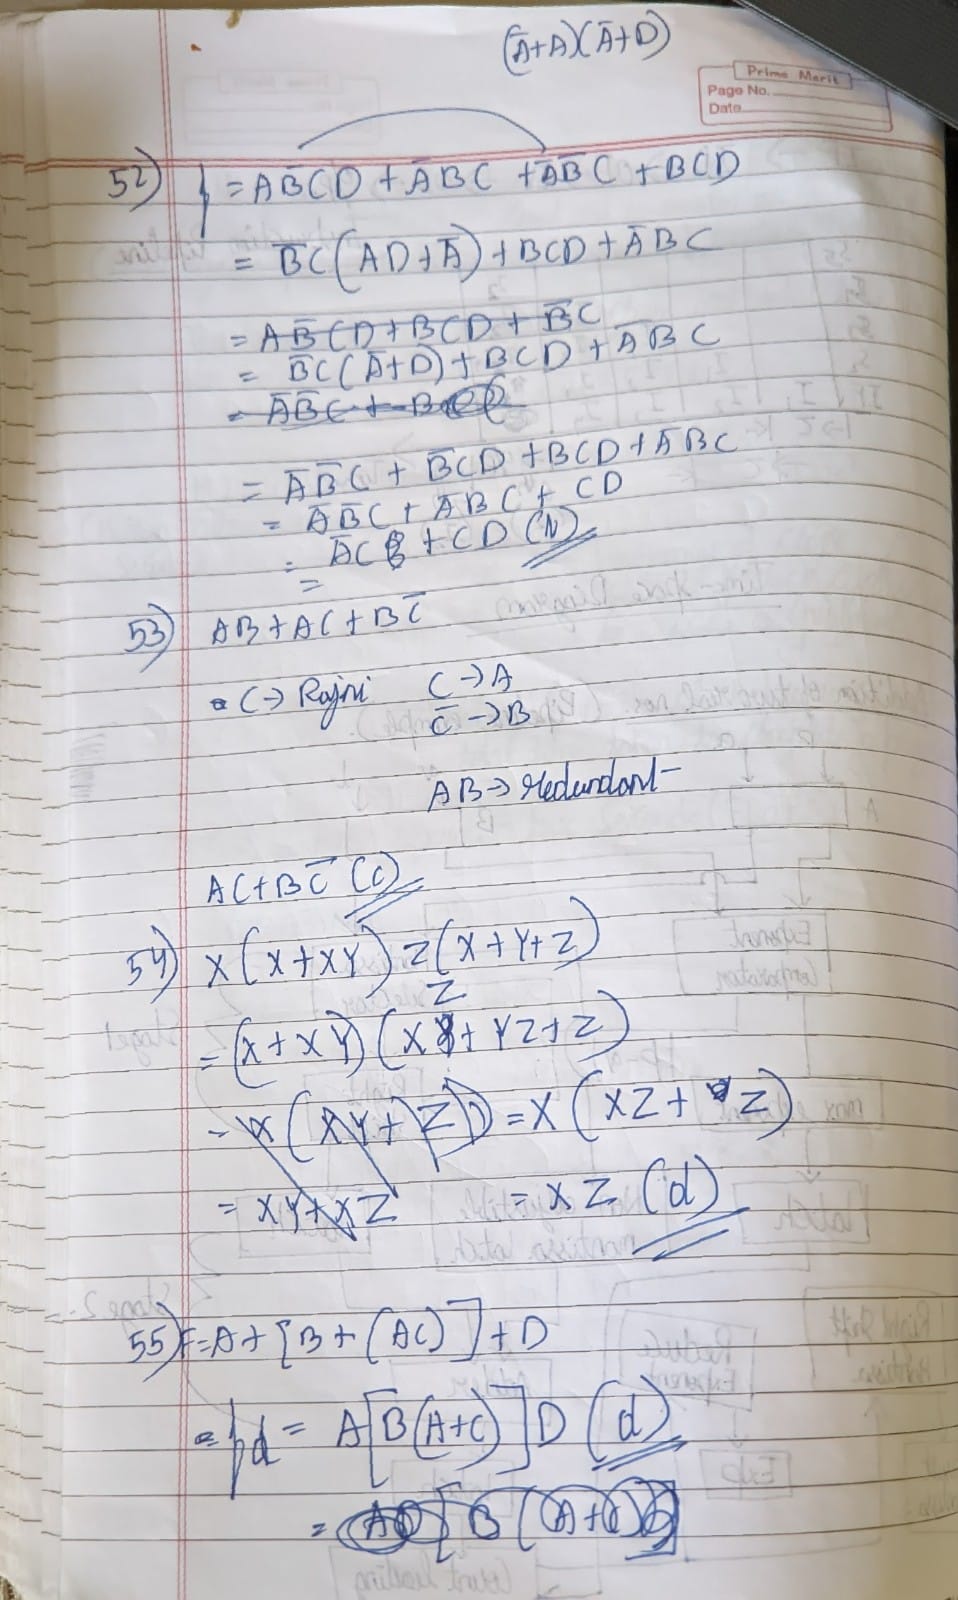 (A̅+A)(A̅+D)
Prime Merit
Page No.
Date
52) f = AB̅CD + A̅BC + A̅B̅C + BCD
= B̅C(AD+A̅) + BCD + A̅BC
= AB̅CD + BCD + B̅C
= B̅C(A̅+D) + BCD + A̅BC
= A̅B̅C + B
= A̅B̅C + B̅CD + BCD + A̅BC
= A̅B̅C + A̅BC + CD
= A̅C + CD (N)
=
53) AB + AC + BC̅
C → Rajni C → A
C̅ → B
AB → redundant
AC + BC̅ (C)
54) X(X+XY) Z(X+Y+Z)
= (X+XY)(XZ + YZ + Z)
= X(XY+Z) = X(XZ + Z)
= XY+XZ = XZ (d)
55) F = A + [B + (AC)] + D
= fd = A[B̅(A+C)]D (d)
= AD[B(A+C)]